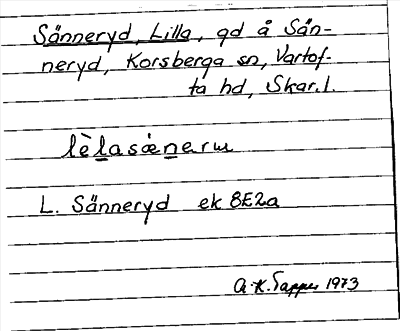 Sänneryd, Lilla, gd å Sän-
neryd, Korsberga sn, Vartof-
ta hd, Skar.l.
lèlasǽnerm
L. Sänneryd ek 8E2a
A.K. Tapper 1973